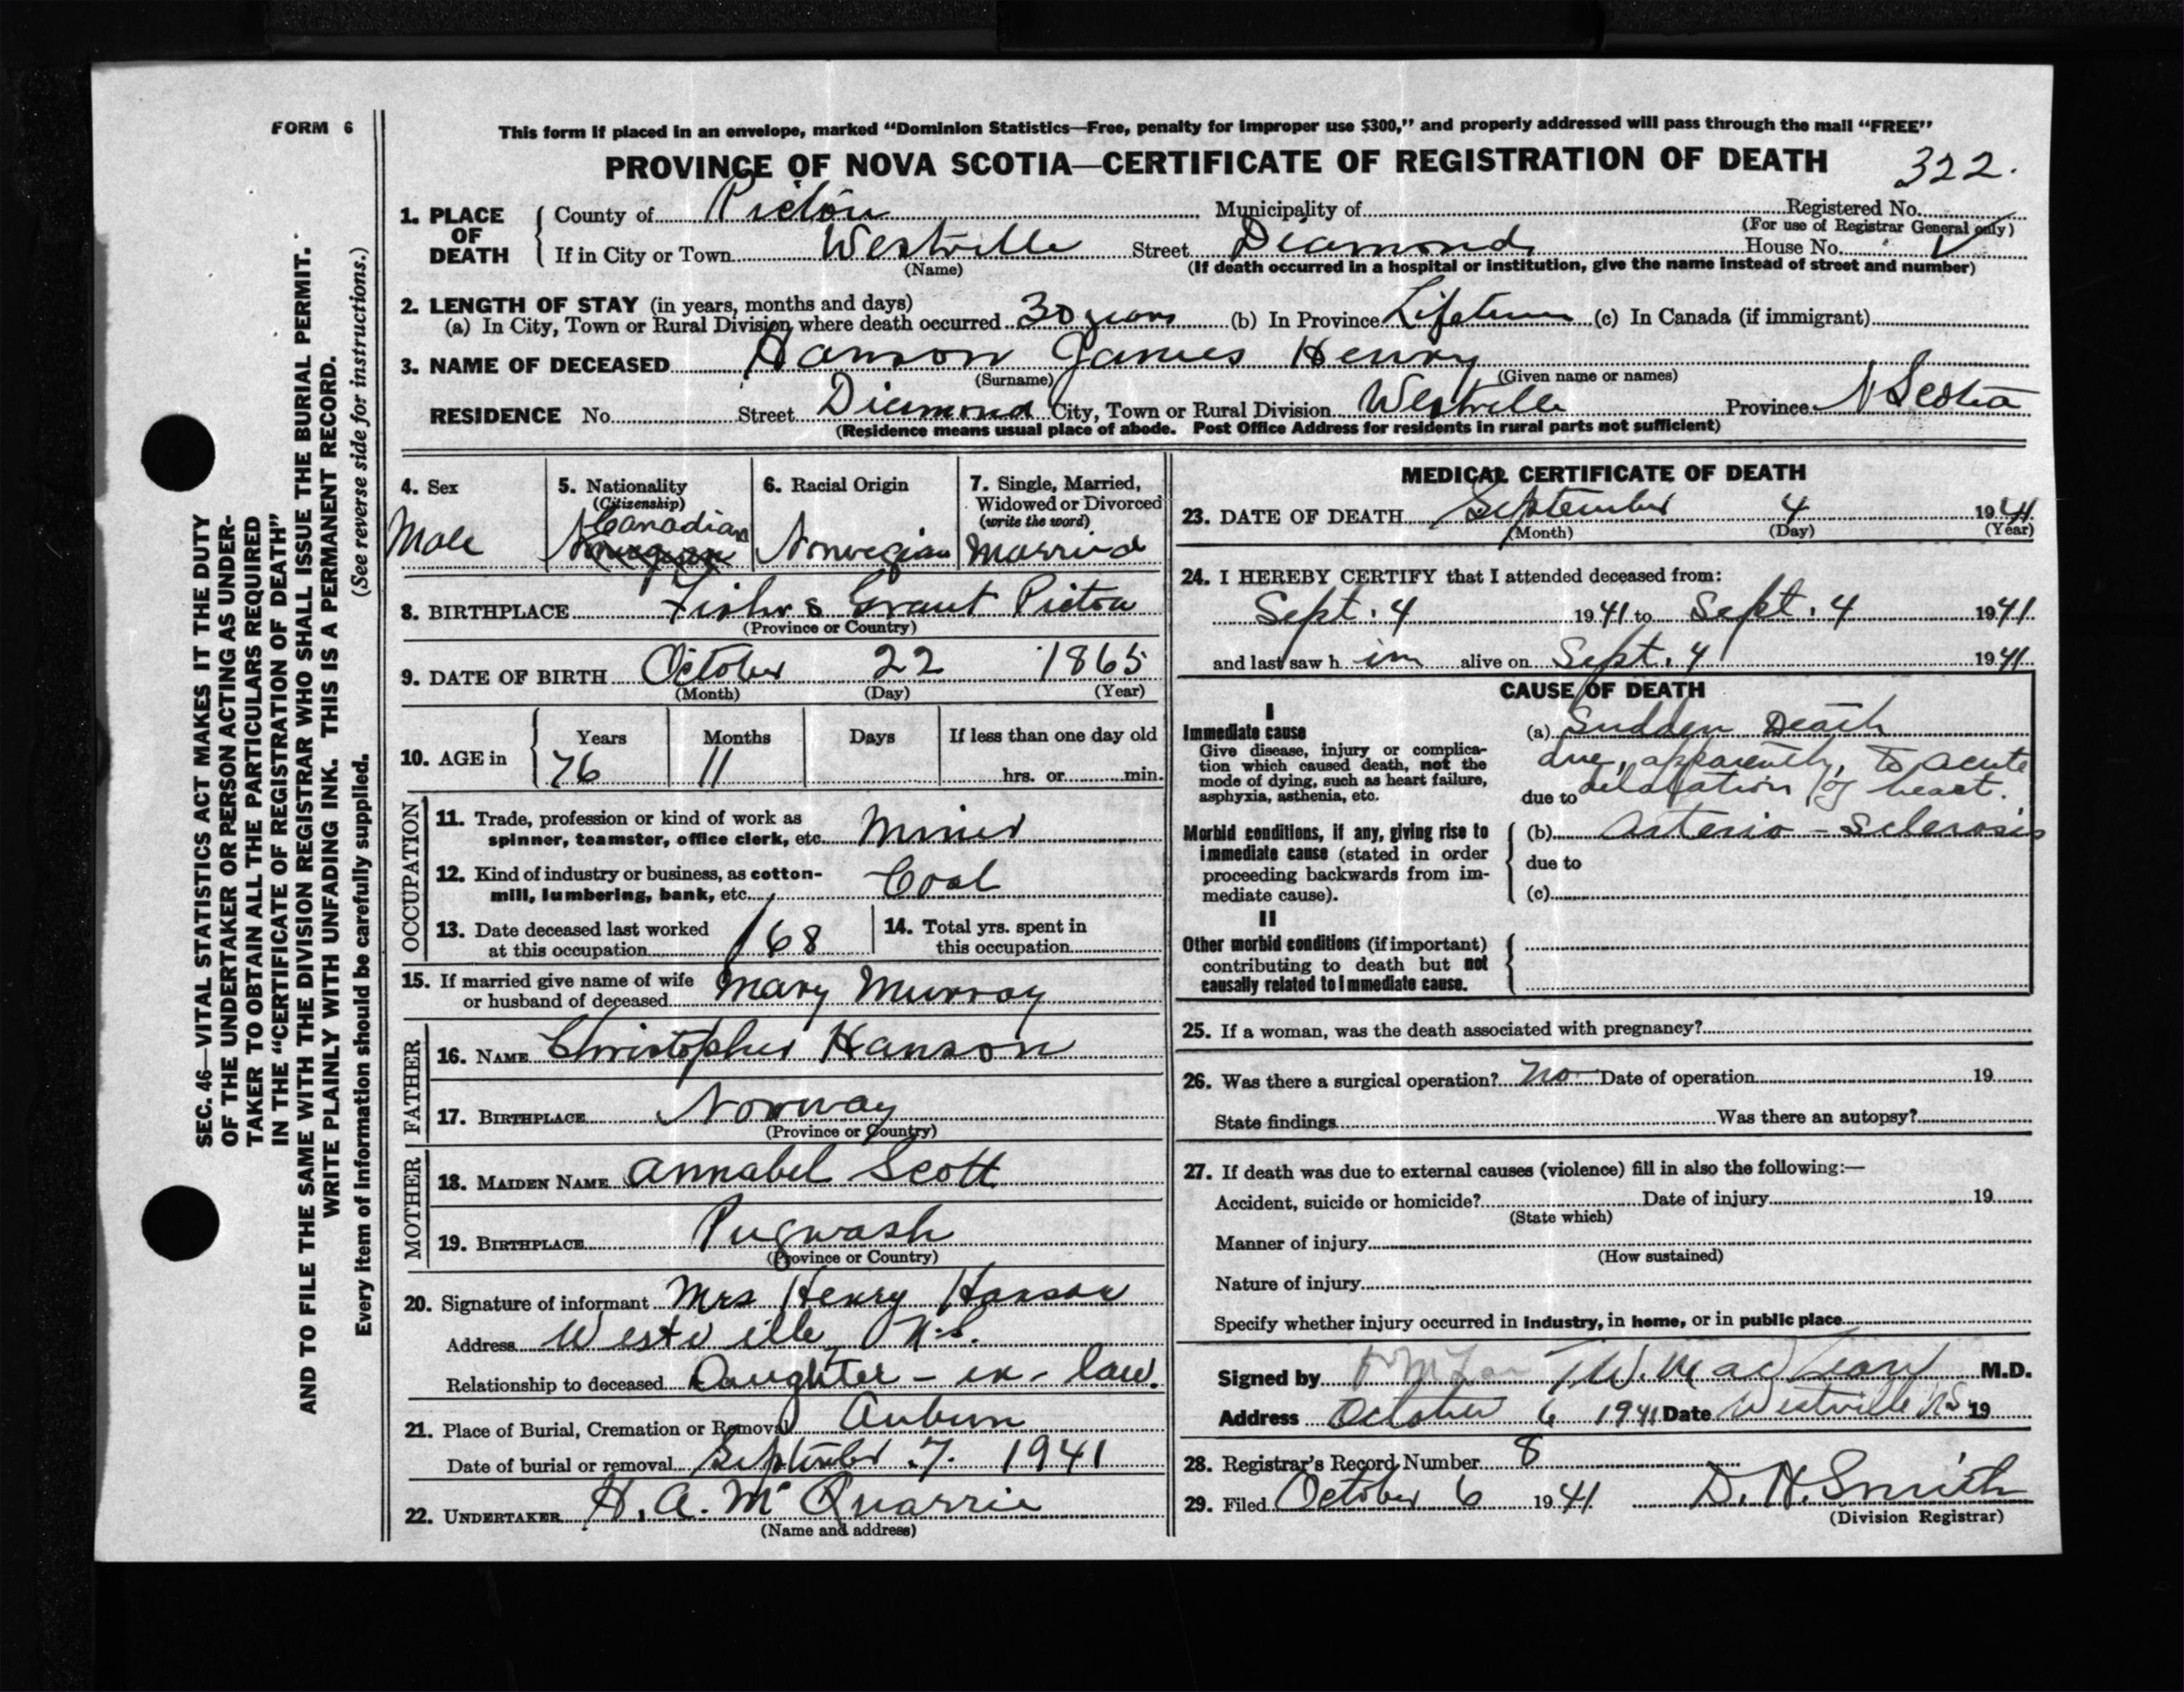 FORM 6
This form if placed in an envelope, marked "Dominion Statistics—Free, penalty for improper use $300," and properly addressed will pass through the mail "FREE"
PROVINCE OF NOVA SCOTIA—CERTIFICATE OF REGISTRATION OF DEATH
322.
1. PLACE OF DEATH
County of Pictou Municipality of Registered No.
(For use of Registrar General only)
If in City or Town Westville Street Diamond House No.
(Name) (If death occurred in a hospital or institution, give the name instead of street and number)
2. LENGTH OF STAY (in years, months and days)
(a) In City, Town or Rural Division where death occurred 30 years (b) In Province Lifetime (c) In Canada (if immigrant)
3. NAME OF DECEASED Hanson James Henry
(Surname) (Given name or names)
RESIDENCE No. Street Diamond City, Town or Rural Division Westville Province N Scotia
(Residence means usual place of abode. Post Office Address for residents in rural parts not sufficient)
4. Sex
Male
5. Nationality
(Citizenship)
Canadian
Norwegian
6. Racial Origin
Norwegian
7. Single, Married,
Widowed or Divorced
(write the word)
Married
8. BIRTHPLACE Fishers Grant Pictou
(Province or Country)
9. DATE OF BIRTH October 22 1865
(Month) (Day) (Year)
10. AGE in
Years Months Days If less than one day old
76 11 hrs. or min.
OCCUPATION
11. Trade, profession or kind of work as
spinner, teamster, office clerk, etc. Miner
12. Kind of industry or business, as cotton-
mill, lumbering, bank, etc. Coal
13. Date deceased last worked
at this occupation 68
14. Total yrs. spent in
this occupation
15. If married give name of wife
or husband of deceased Mary Murray
FATHER
16. NAME Christopher Hanson
17. BIRTHPLACE Norway
(Province or Country)
MOTHER
18. MAIDEN NAME Annabel Scott
19. BIRTHPLACE Pugwash
(Province or Country)
20. Signature of informant Mrs Henry Hanson
Address Westville N.S.
Relationship to deceased Daughter-in-law.
21. Place of Burial, Cremation or Removal Auburn
Date of burial or removal September 7. 1941
22. UNDERTAKER H. A. McQuarrie
(Name and address)
MEDICAL CERTIFICATE OF DEATH
23. DATE OF DEATH September 4 1941
(Month) (Day) (Year)
24. I HEREBY CERTIFY that I attended deceased from:
Sept. 4 1941 to Sept. 4 1941
and last saw h im alive on Sept. 4 1941
CAUSE OF DEATH
I
Immediate cause
Give disease, injury or complica-
tion which caused death, not the
mode of dying, such as heart failure,
asphyxia, asthenia, etc.
(a) Sudden Death
due, apparently, to acute
due to dilatation of heart.
Morbid conditions, if any, giving rise to
immediate cause (stated in order
proceeding backwards from im-
mediate cause).
(b) Arterio-Sclerosis
due to
(c)
II
Other morbid conditions (if important)
contributing to death but not
causally related to immediate cause.
25. If a woman, was the death associated with pregnancy?
26. Was there a surgical operation? No Date of operation 19
State findings Was there an autopsy?
27. If death was due to external causes (violence) fill in also the following:—
Accident, suicide or homicide? Date of injury 19
(State which)
Manner of injury
(How sustained)
Nature of injury
Specify whether injury occurred in Industry, in home, or in public place
Signed by T.W. MacLean M.D.
Address October 6 1941 Date Westville NS 19
28. Registrar's Record Number 8
29. Filed October 6 1941 D. H. Smith
(Division Registrar)
SEC. 46—VITAL STATISTICS ACT MAKES IT THE DUTY
OF THE UNDERTAKER OR PERSON ACTING AS UNDER-
TAKER TO OBTAIN ALL THE PARTICULARS REQUIRED
IN THE "CERTIFICATE OF REGISTRATION OF DEATH"
AND TO FILE THE SAME WITH THE DIVISION REGISTRAR WHO SHALL ISSUE THE BURIAL PERMIT.
WRITE PLAINLY WITH UNFADING INK. THIS IS A PERMANENT RECORD.
Every item of information should be carefully supplied. (See reverse side for instructions.)